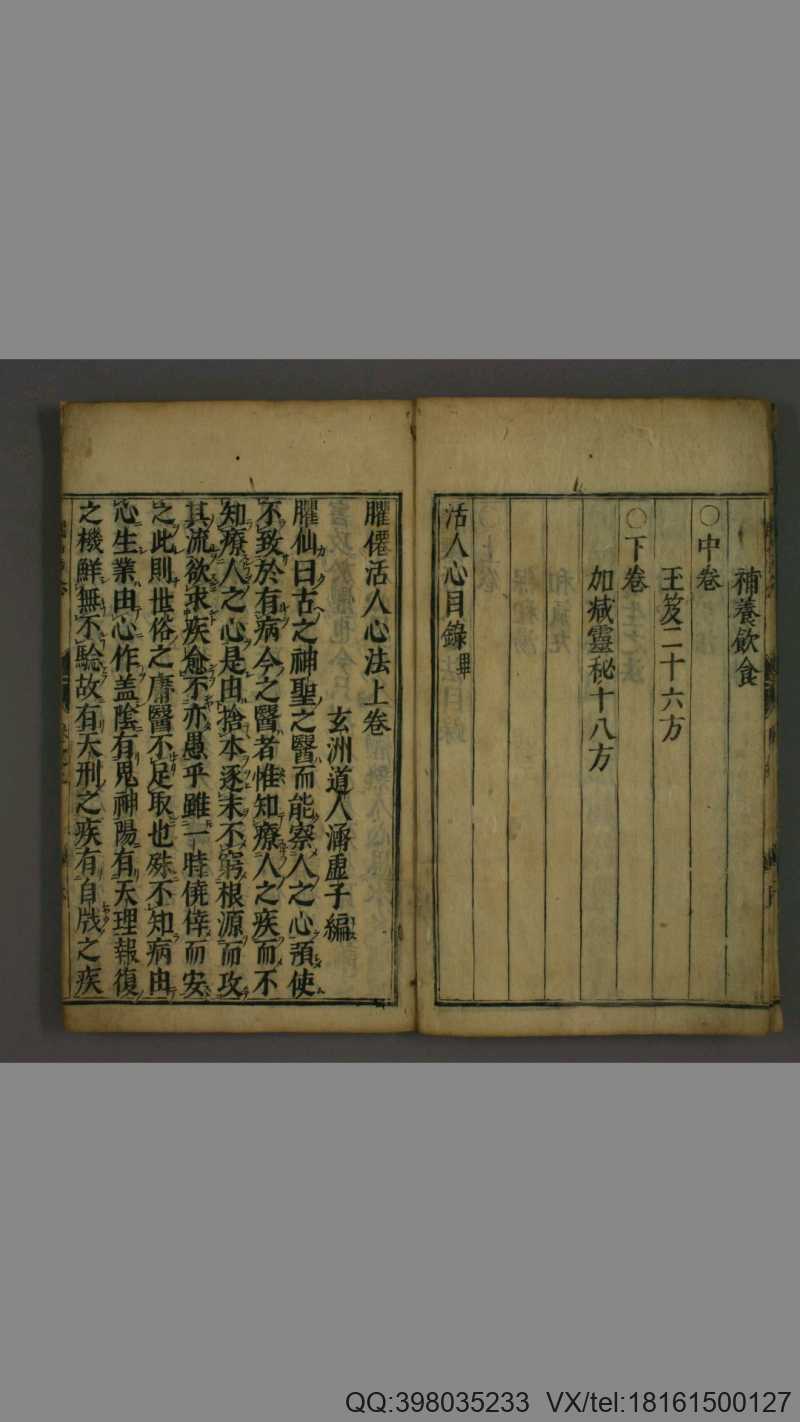 補養飲食
○中卷
玉笈二十六方
○下卷
加减靈秘十八方
活人心目錄畢
臞僊活人心法上卷
玄洲道人涵虛子編
臞仙曰古之神聖之醫而能察人之心預使
不致於有病今之醫者惟知療人之疾而不
知療人之心是由捨本逐末不窮根源而攻
其流欲求疾愈不亦愚乎雖一時僥倖而安
之此則世俗之庸醫不足取也殊不知病由
心生業由心作盖陰有鬼神陽有天理報復
之機鮮無不驗故有天刑之疾有自戕之疾
QQ:398035233 VX/tel:18161500127